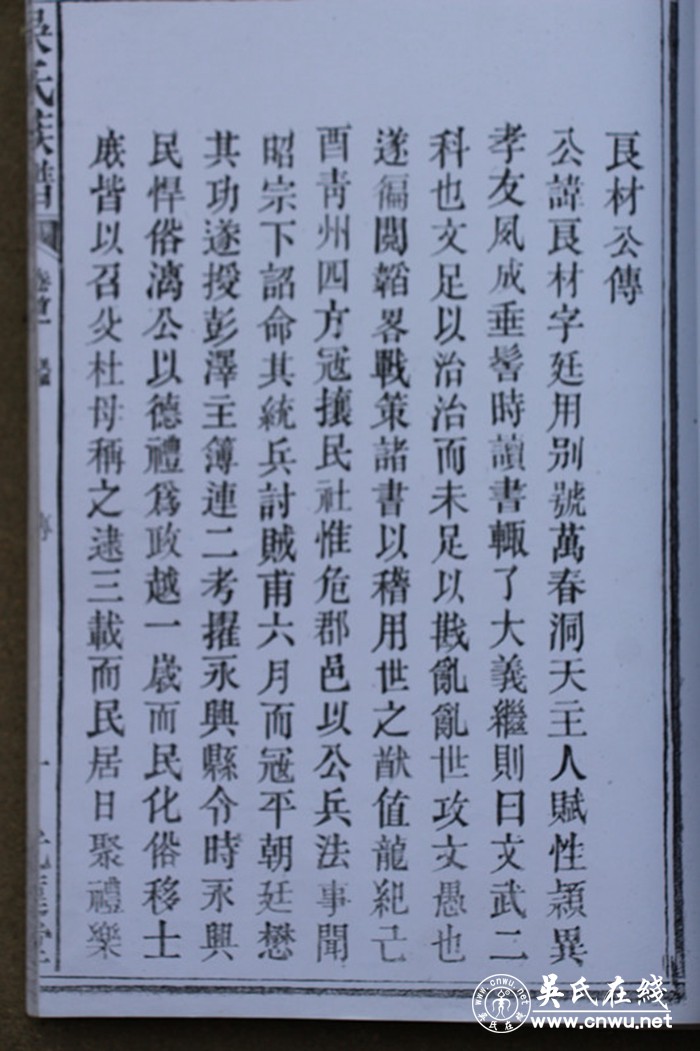 良材公傳
公諱良材字廷用別號萬春洞天主人賦性穎異
孝友夙成垂髫時讀書輒了大義繼則曰文武二
科也文足以治治而未足以戡亂亂世攻文愚也
遂徧閱韜畧戰策諸書以稽用世之猷值龍紀己
酉靑州四方冦攘民社惟危郡邑以公兵法事聞
昭宗下詔命其統兵討賊甫六月而冦平朝廷懋
其功遂授彭澤主簿連二考擢永興縣令時永興
民悍俗漓公以德禮爲政越一歲而民化俗移士
庶皆以召父杜母稱之逮三載而民居日聚禮樂
吳氏族譜 卷首一 傳 一
吳氏在线
www.cnwu.net